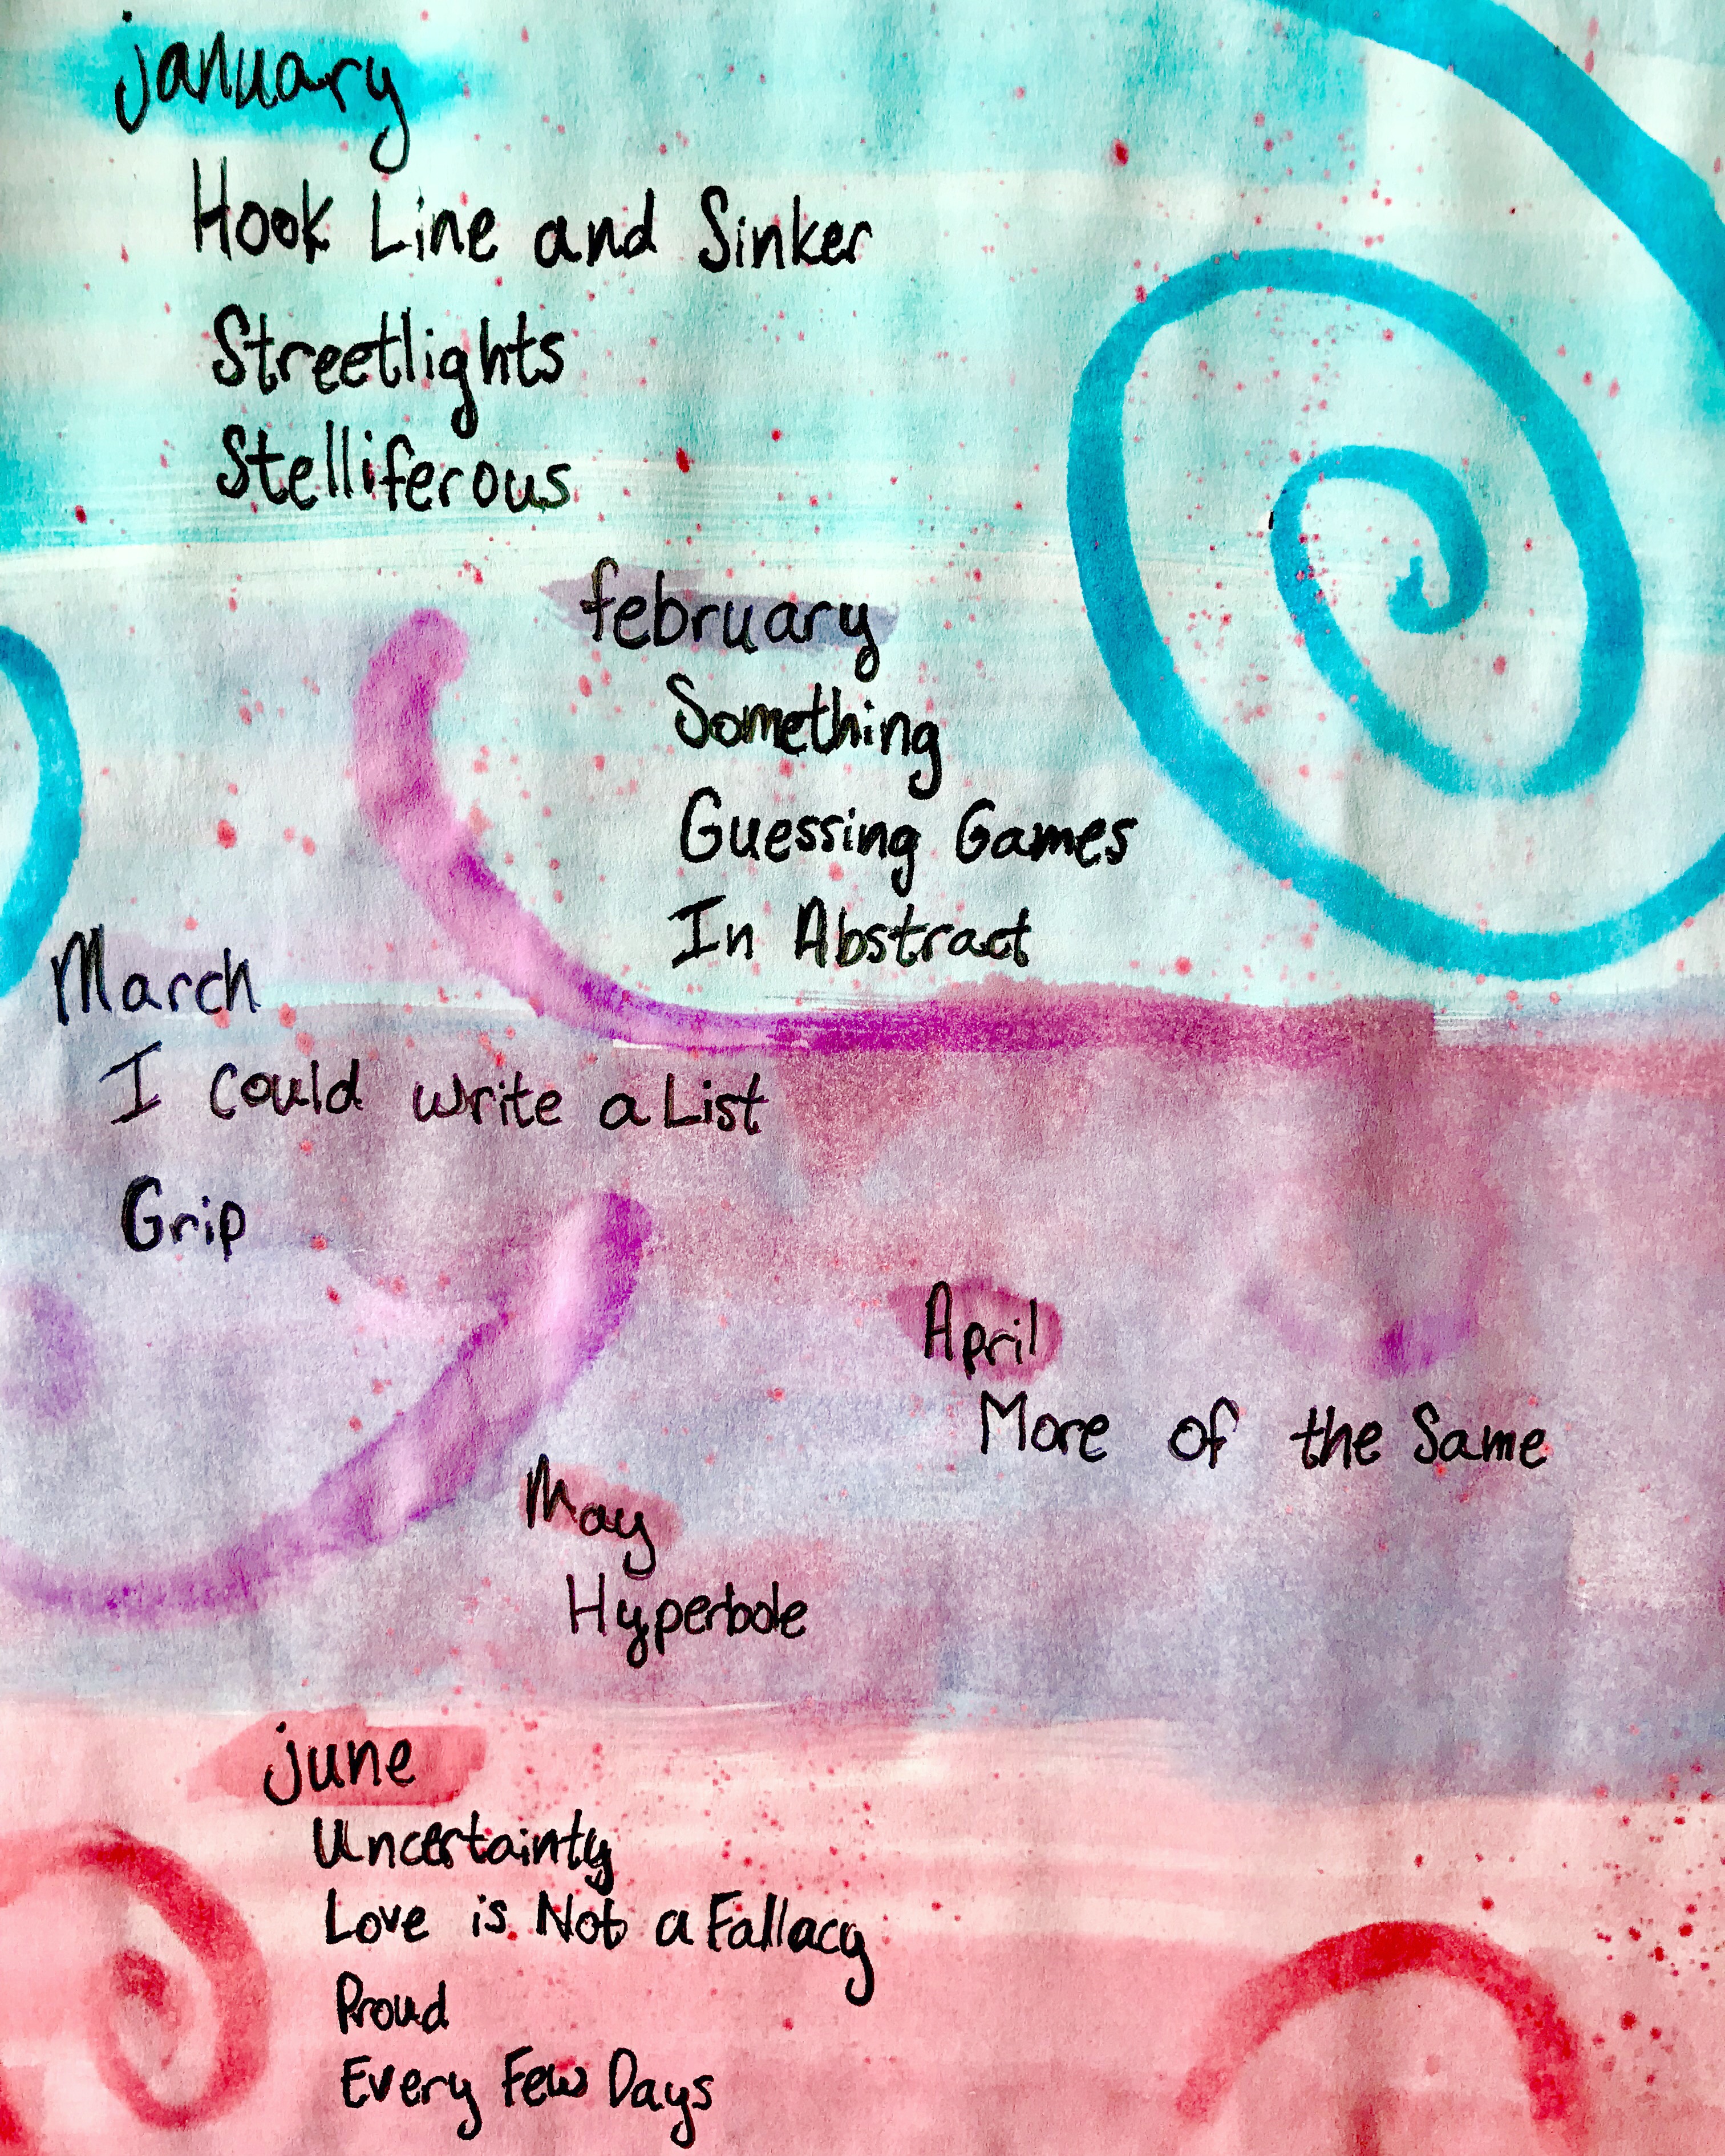 january
Hook Line and Sinker
Streetlights
Stelliferous
february
Something
Guessing Games
In Abstract
March
I could write a List
Grip
April
More of the Same
May
Hyperbole
june
Uncertainty
Love is Not a Fallacy
Proud
Every Few Days